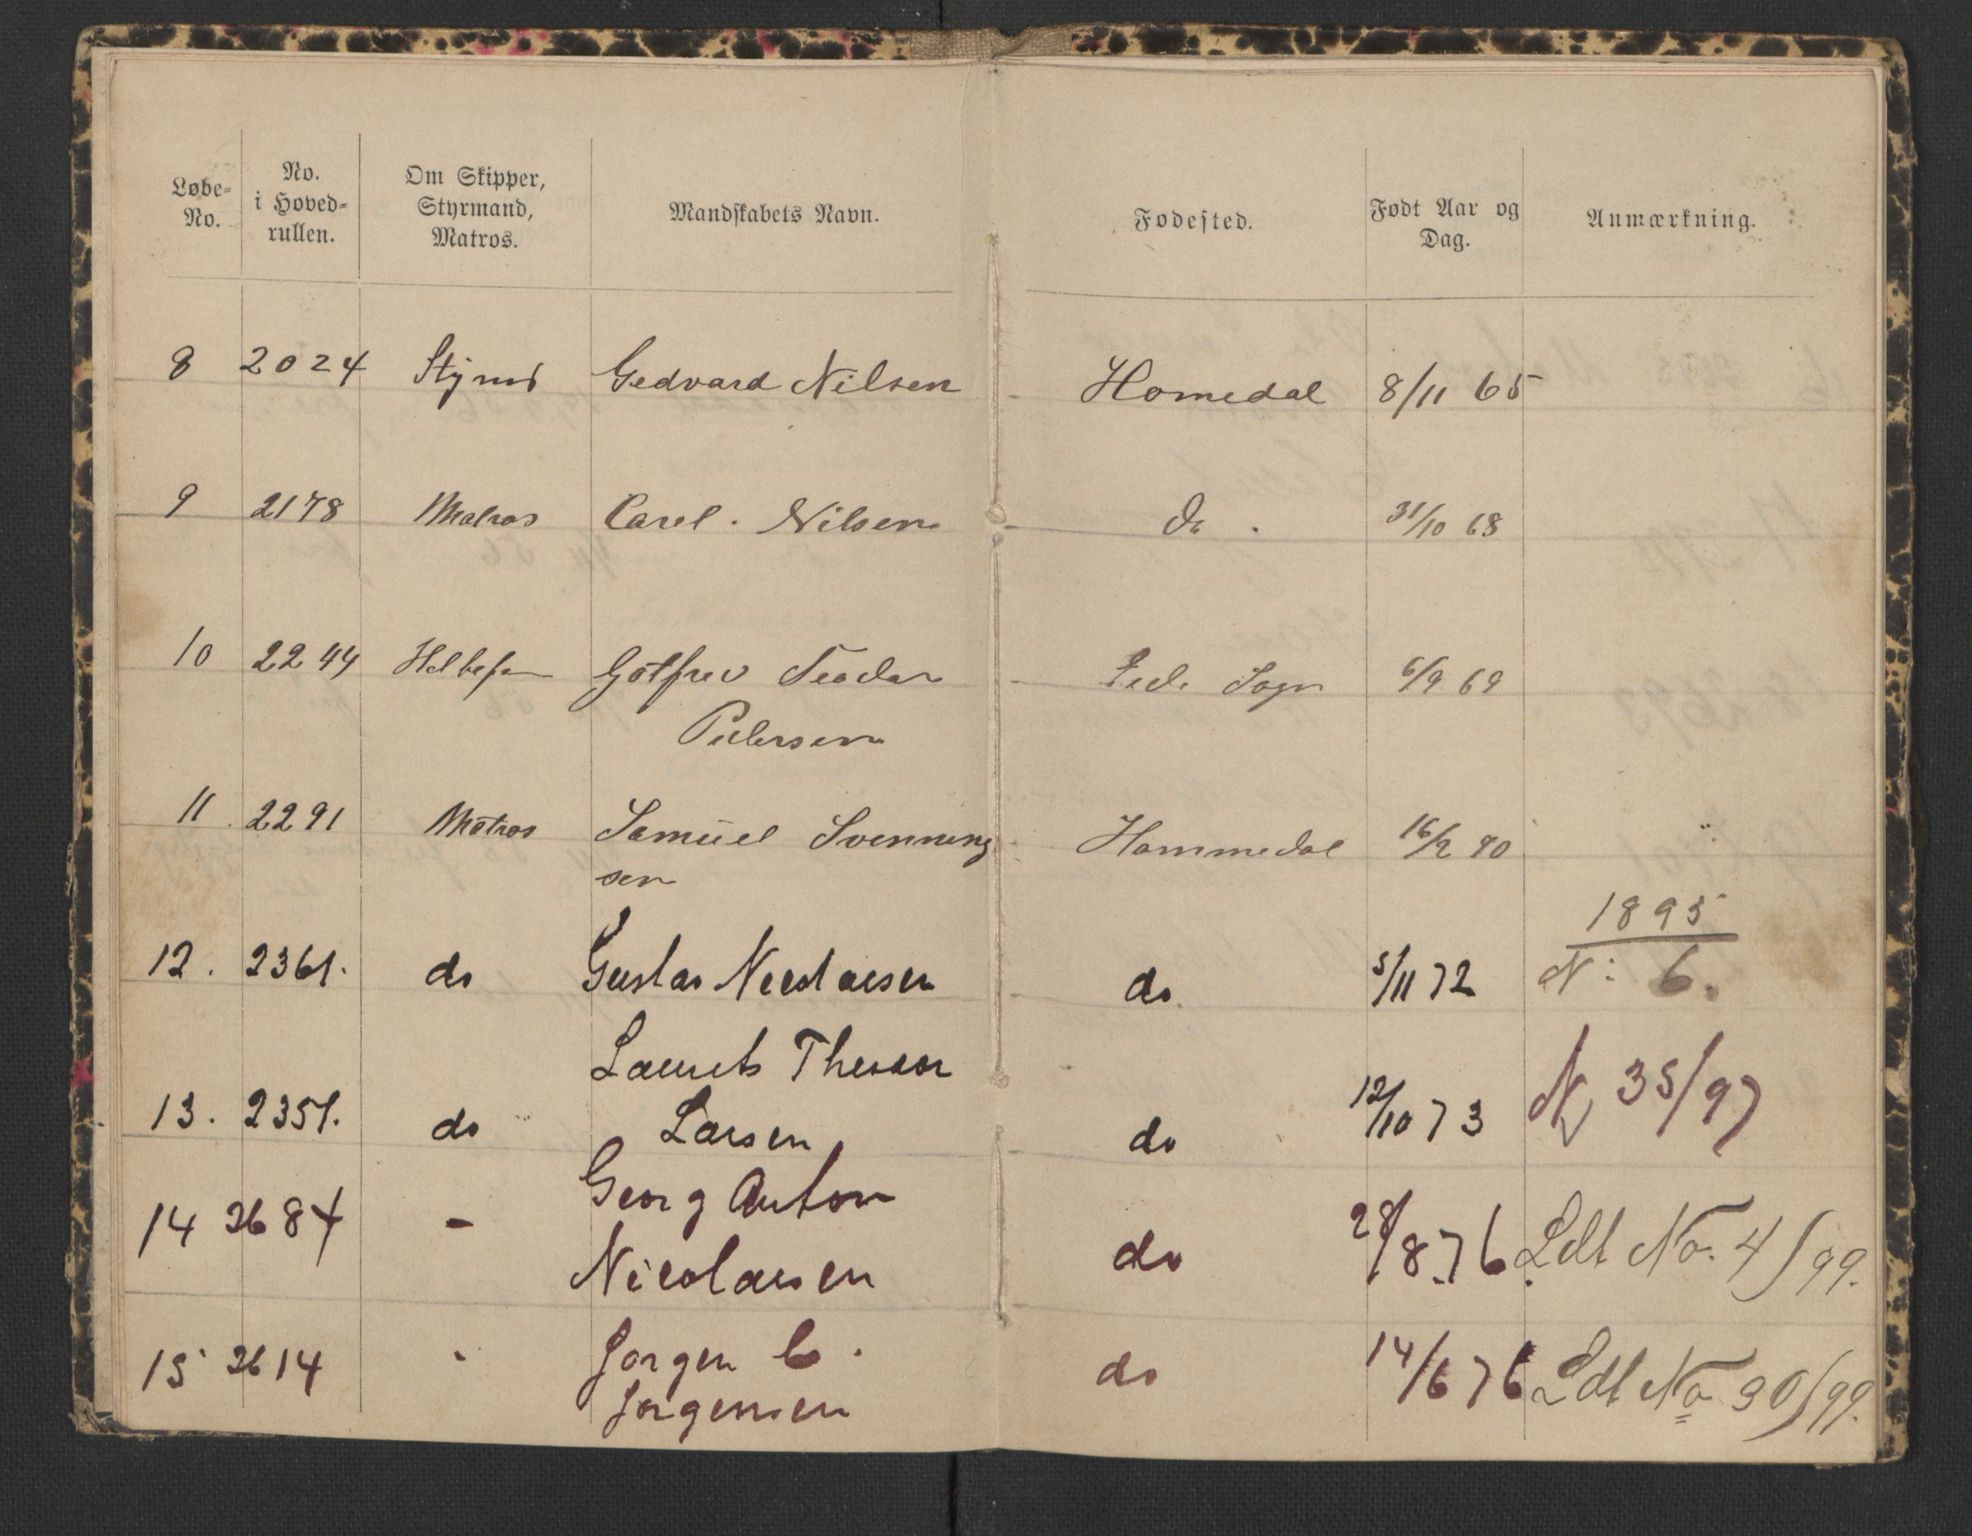 Løbe-No. | No. i Hoved-rullen. | Om Skipper, Styrmand, Matros. | Mandskabets Navn. | Fødested. | Født Aar og Dag. | Anmærkning.
8 2024 Styrmd Gedvard Nilsen Homedal 8/11 65
9 2178 Matros Carel. Nilsen do. 31/10 68
10 2244 Gotfred Teodor Sogn 6/9 69
Pedersen
11. 2291 Matros Samuel Svenning Hommedal 16/2 70
sen
1895
12. 2361. do Gustav Nicolaisen do 5/11 72 N: 6.
Laurits Theodor
13. 2351. do Larsen do 12/10 73 N 35/97
Georg Anton
14 2684 - Nicolaisen do 28/8 76 Ldt No. 4/99.
15 2614 - Jørgen C. do 14/6 76 Ldt No 30/99.
Jørgensen